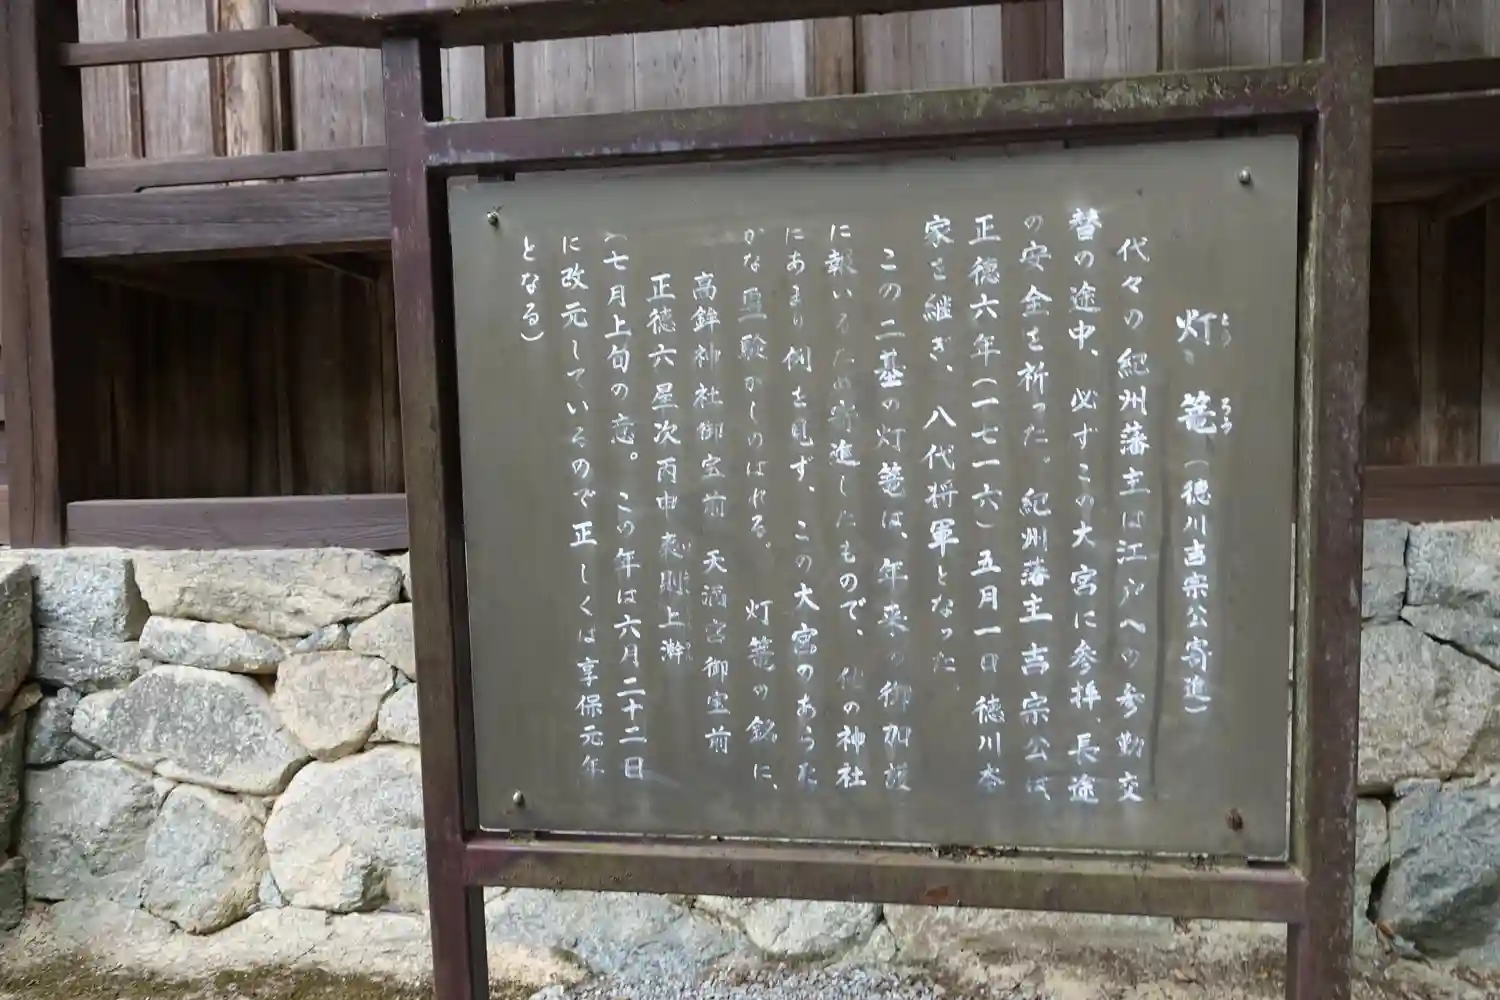 灯籠(徳川吉宗公寄進)
とう ろう
代々の紀州藩主は江戸への参勤交
替の途中、必ずこの大宮に参拝、長途
の安全を祈った。紀州藩主吉宗公は、
正徳六年(一七一六)五月一日徳川本
家を継ぎ、八代将軍となった。
この二基の灯篭は、年来の御加護
に報いるため寄進したもので、他の神社
にあまり例を見ず、この大宮のあらた
かな霊験がしのばれる。 灯篭の銘に、
高鉾神社御宝前 天満宮御宝前
正徳六星次丙申 則上澣
(七月上旬の意。この年は六月二十二日
に改元しているので正しくは享保元年
となる)